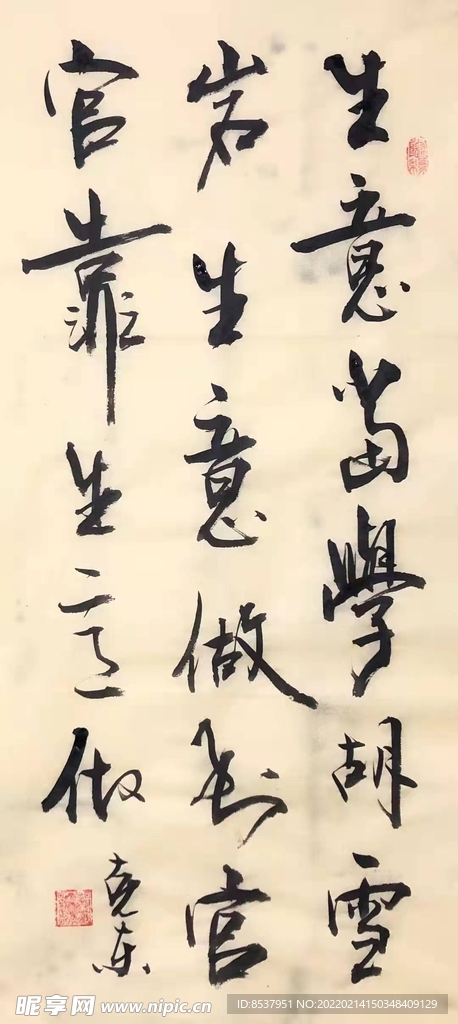 生意當學胡雪
岩生意做官
官靠生意做
尧东
昵享网 www.nipic.cn
ID:8537951 NO:20220214150348409129